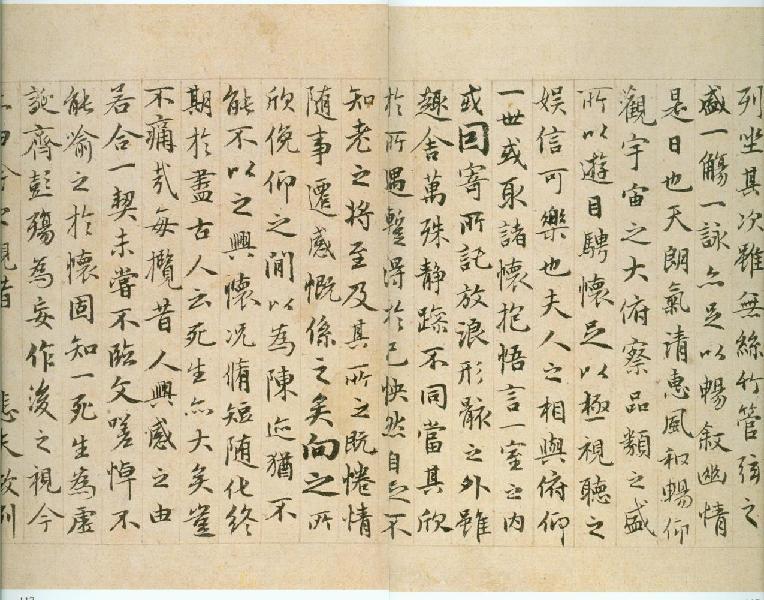 列坐其次雖無絲竹管弦之
盛一觴一詠亦足以暢敘幽情
是日也天朗氣清惠風和暢仰
觀宇宙之大俯察品類之盛
所以遊目騁懷足以極視聽之
娛信可樂也夫人之相與俯仰
一世或取諸懷抱悟言一室之內
或因寄所託放浪形骸之外雖
趣舍萬殊静躁不同當其欣
於所遇暫得於己怏然自足不
知老之將至及其所之既惓情
随事遷感慨係之矣向之所
欣俛仰之閒以為陳迹猶不
能不以之興懷况脩短随化終
期於盡古人云死生亦大矣豈
不痛哉每攬昔人興感之由
若合一契未嘗不臨文嗟悼不
能喻之於懷固知一死生為虛
誕齊彭殤為妄作後之視今
由今之視昔悲夫故列